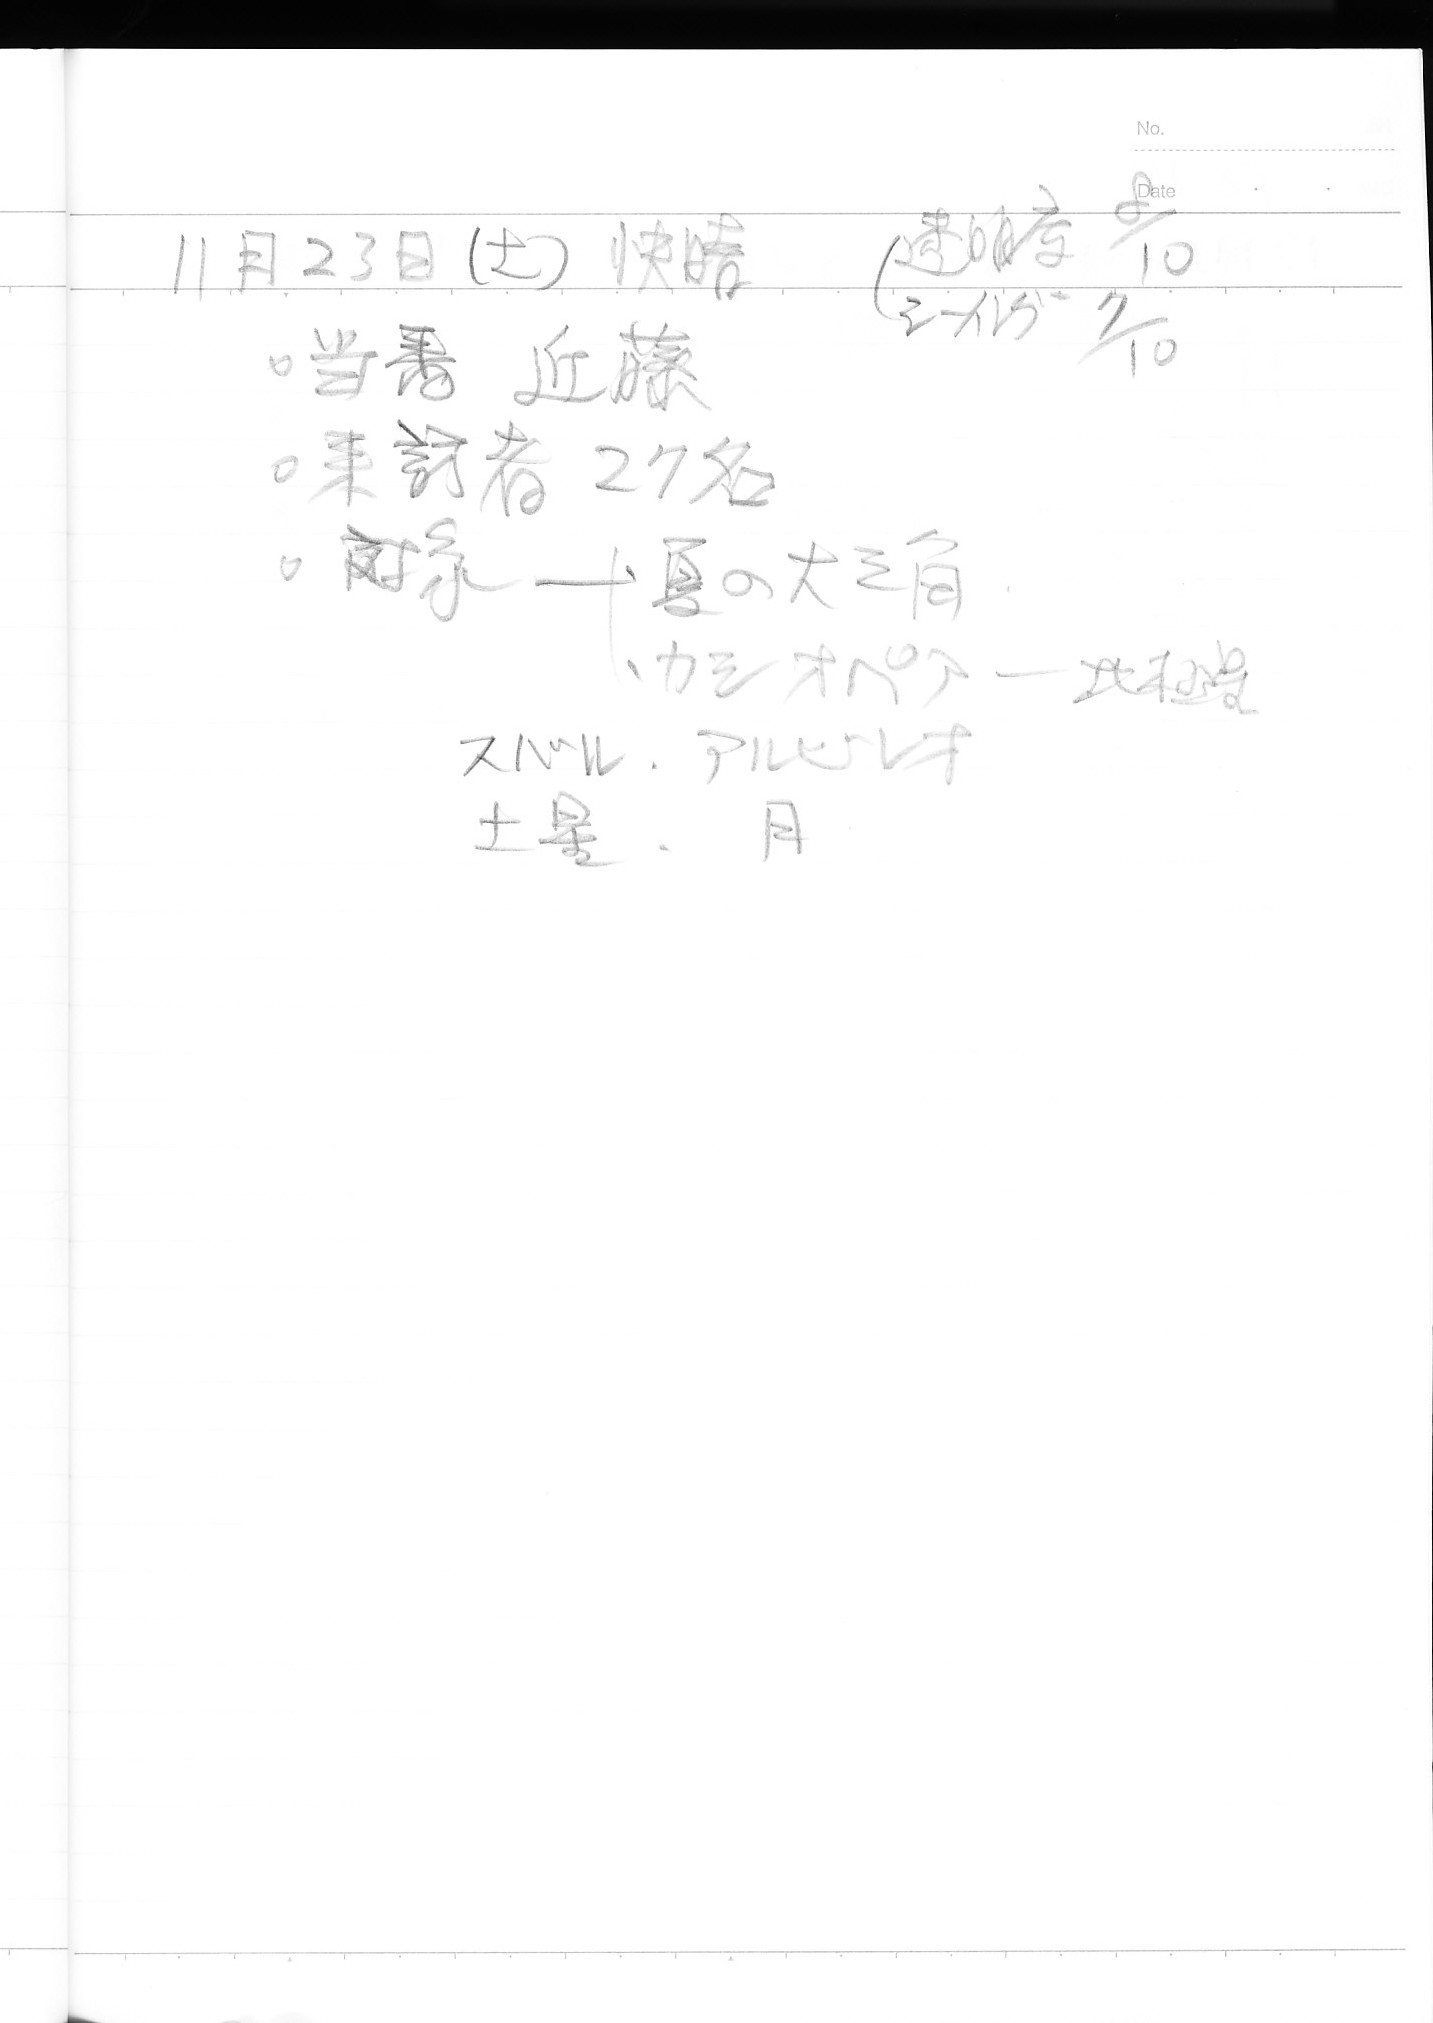 No.
Date
11月23日(土) 快晴
透明度 8/10
シーイング 7/10
○当番 近藤
○来訪者 27名
○対象 → 夏の大三角
カシオペア － 北極星
スバル . アルビレオ
土星 . 月